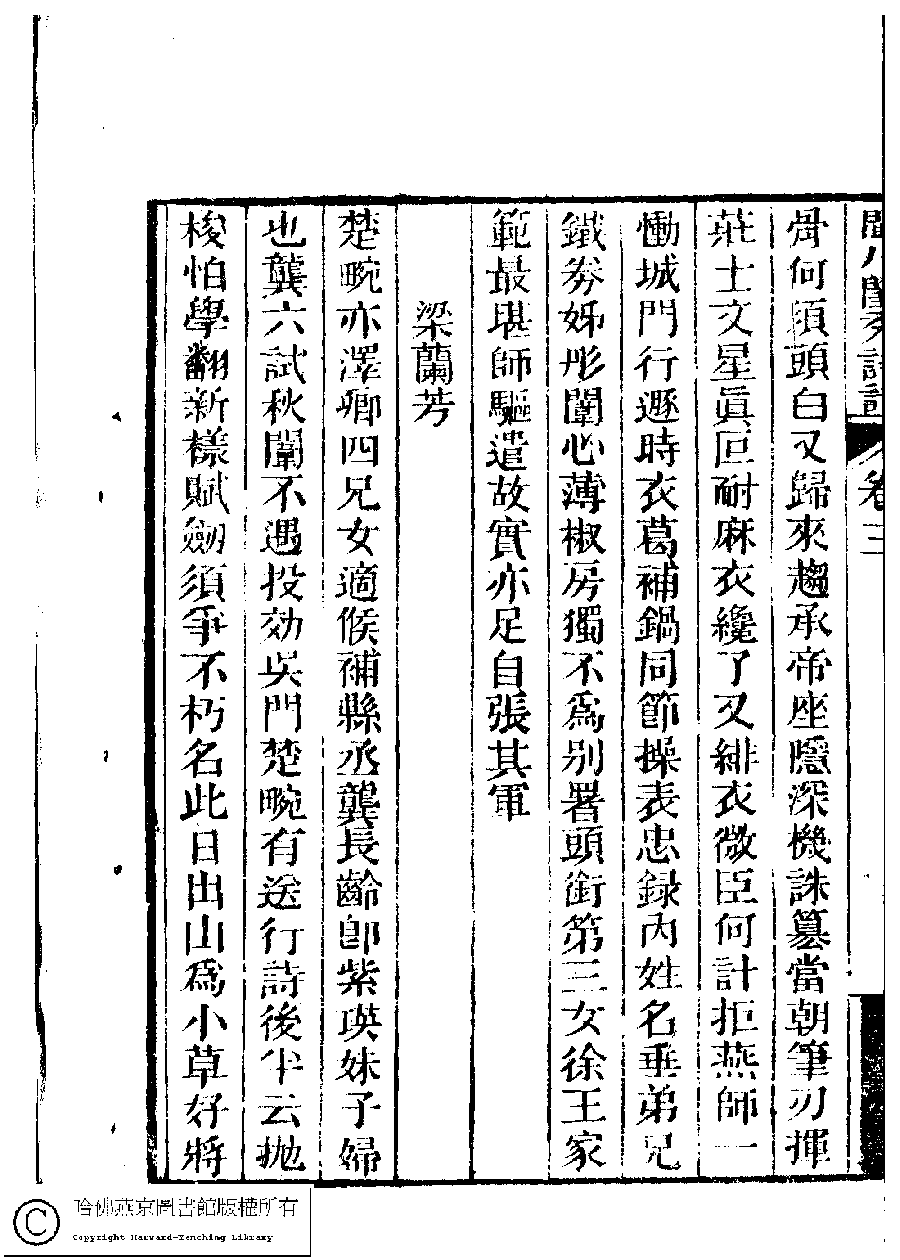 閩川閨秀詩話 卷三
骨何須頭白又歸來趨承帝座隱深機誅篡當朝筆刃揮
莊士文星眞叵耐麻衣纔了又緋衣微臣何計拒燕師一
慟城門行遯時衣葛補鍋同節操表忠録內姓名垂弟兄
鐵券姊彤闈心薄椒房獨不爲別署頭銜第三女徐王家
範最堪師驅遣故實亦足自張其軍
梁蘭芳
楚畹亦澤卿四兄女適候補縣丞龔長齡卽紫瑛妹子婦
也龔六試秋闈不遇投効吳門楚畹有送行詩後半云拋
梭怕學翻新樣賦劒須爭不朽名此日出山爲小草好將
哈佛燕京圖書館版權所有
Copyright Harvard-Yenching Library